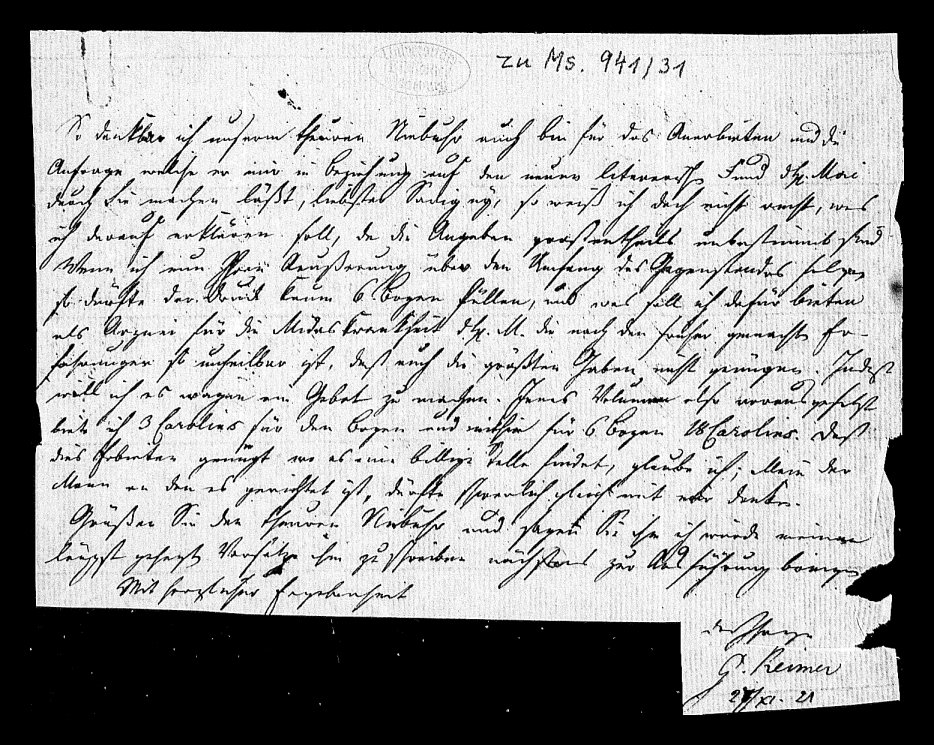 zu Ms. 941/31
So dankbar ich unserm theuren Niebuhr auch bin für das Anerbieten und die
Anfrage welche er mir in Beziehung auf den neuen literarisch. Fund Mai
durch Sie machen läßt, liebster Savigny, so weiß ich doch nicht recht, was
ich darauf erklären soll, da die Angaben großentheils unbestimmt sind
Wenn ich nun Ihrer Aeußerung über den Umfang des Gegenstandes folge,
so dürfte der Druck kaum 6 Bogen füllen, und was soll ich dafür bieten
als Arznei für die Midaskrankheit M. die nach den früher gemachten Er-
fahrungen so unheilbar ist, daß auch die größten Gaben nicht genügen. Indeß
will ich es wagen ein Gebot zu machen. Jenes Volumen also vorausgesetzt
biete ich 3 Carolins für den Bogen und mithin für 6 Bogen 18 Carolins. Daß
dies Erbieten genügt wo es eine billige Stelle findet, glaube ich; allein der
Mann an den es gerichtet ist, dürfte schwerlich gleich mit mir denken.
Grüßen Sie den theuren Niebuhr und sagen Sie ihm ich würde meinen
längst gehegten Vorsatz ihm zu schreiben nächstens zur Ausführung bringen
Mit herzlicher Ergebenheit
der Ihrige
G. Reimer
XI. 21